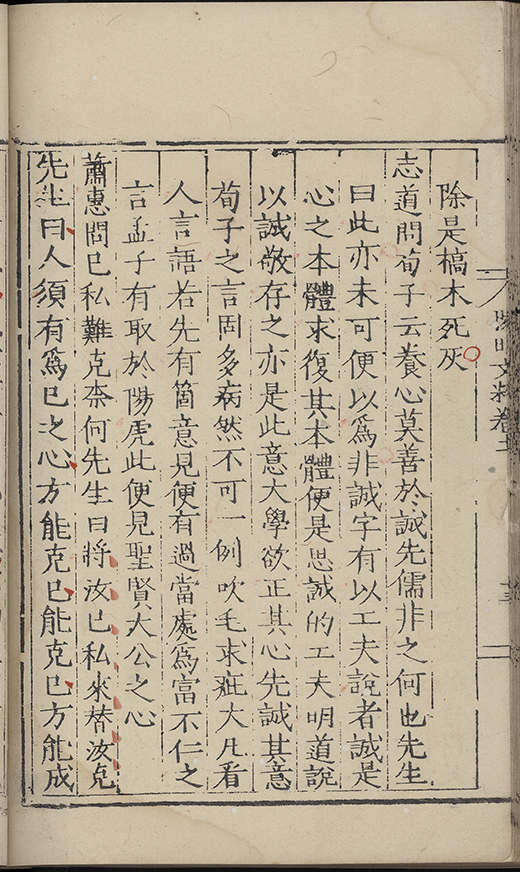 除是槁木死灰
志道問荀子云養心莫善於誠先儒非之何也先生
曰此亦未可便以爲非誠字有以工夫說者誠是
心之本體求復其本體便是思誠的工夫明道說
以誠敬存之亦是此意大學欲正其心先誠其意
荀子之言固多病然不可一例吹毛求疵大凡看
人言語若先有箇意見便有過當處爲富不仁之
言孟子有取於陽虎此便見聖賢大公之心
蕭惠問已私難克柰何先生曰將汝已私來替汝克
先生曰人須有爲已之心方能克已能克已方能成
陽明文粹卷十